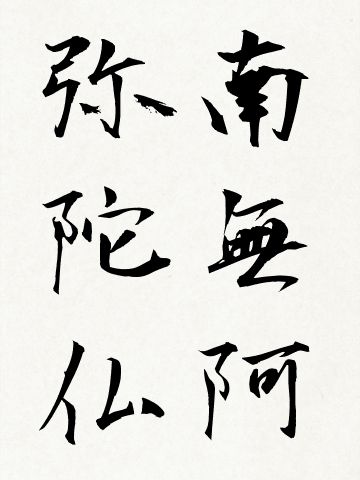 南無阿
弥陀仏